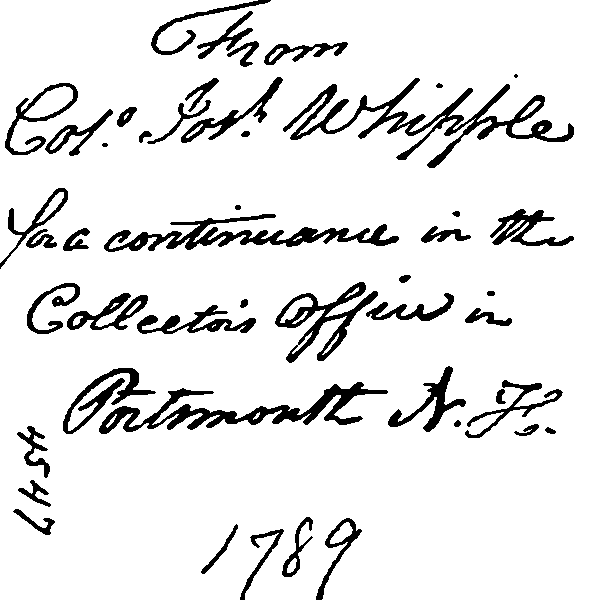 From
Colo. Josh. Whipple
for a continuance in the
Collector's Office in
Portsmouth N. H.
4547
1789